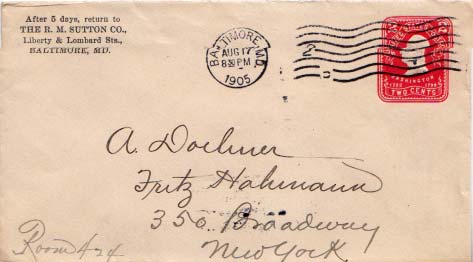 After 5 days, return to
THE R. M. SUTTON CO.,
Liberty & Lombard Sts.,
BALTIMORE, MD.
BALTIMORE, MD.
AUG 17
8 30 PM
1905
UNITED STATES POSTAGE
WASHINGTON
1732 1799
TWO CENTS
A. Doehner
Fritz Hahmann
350 Broadway
New York
Room 424